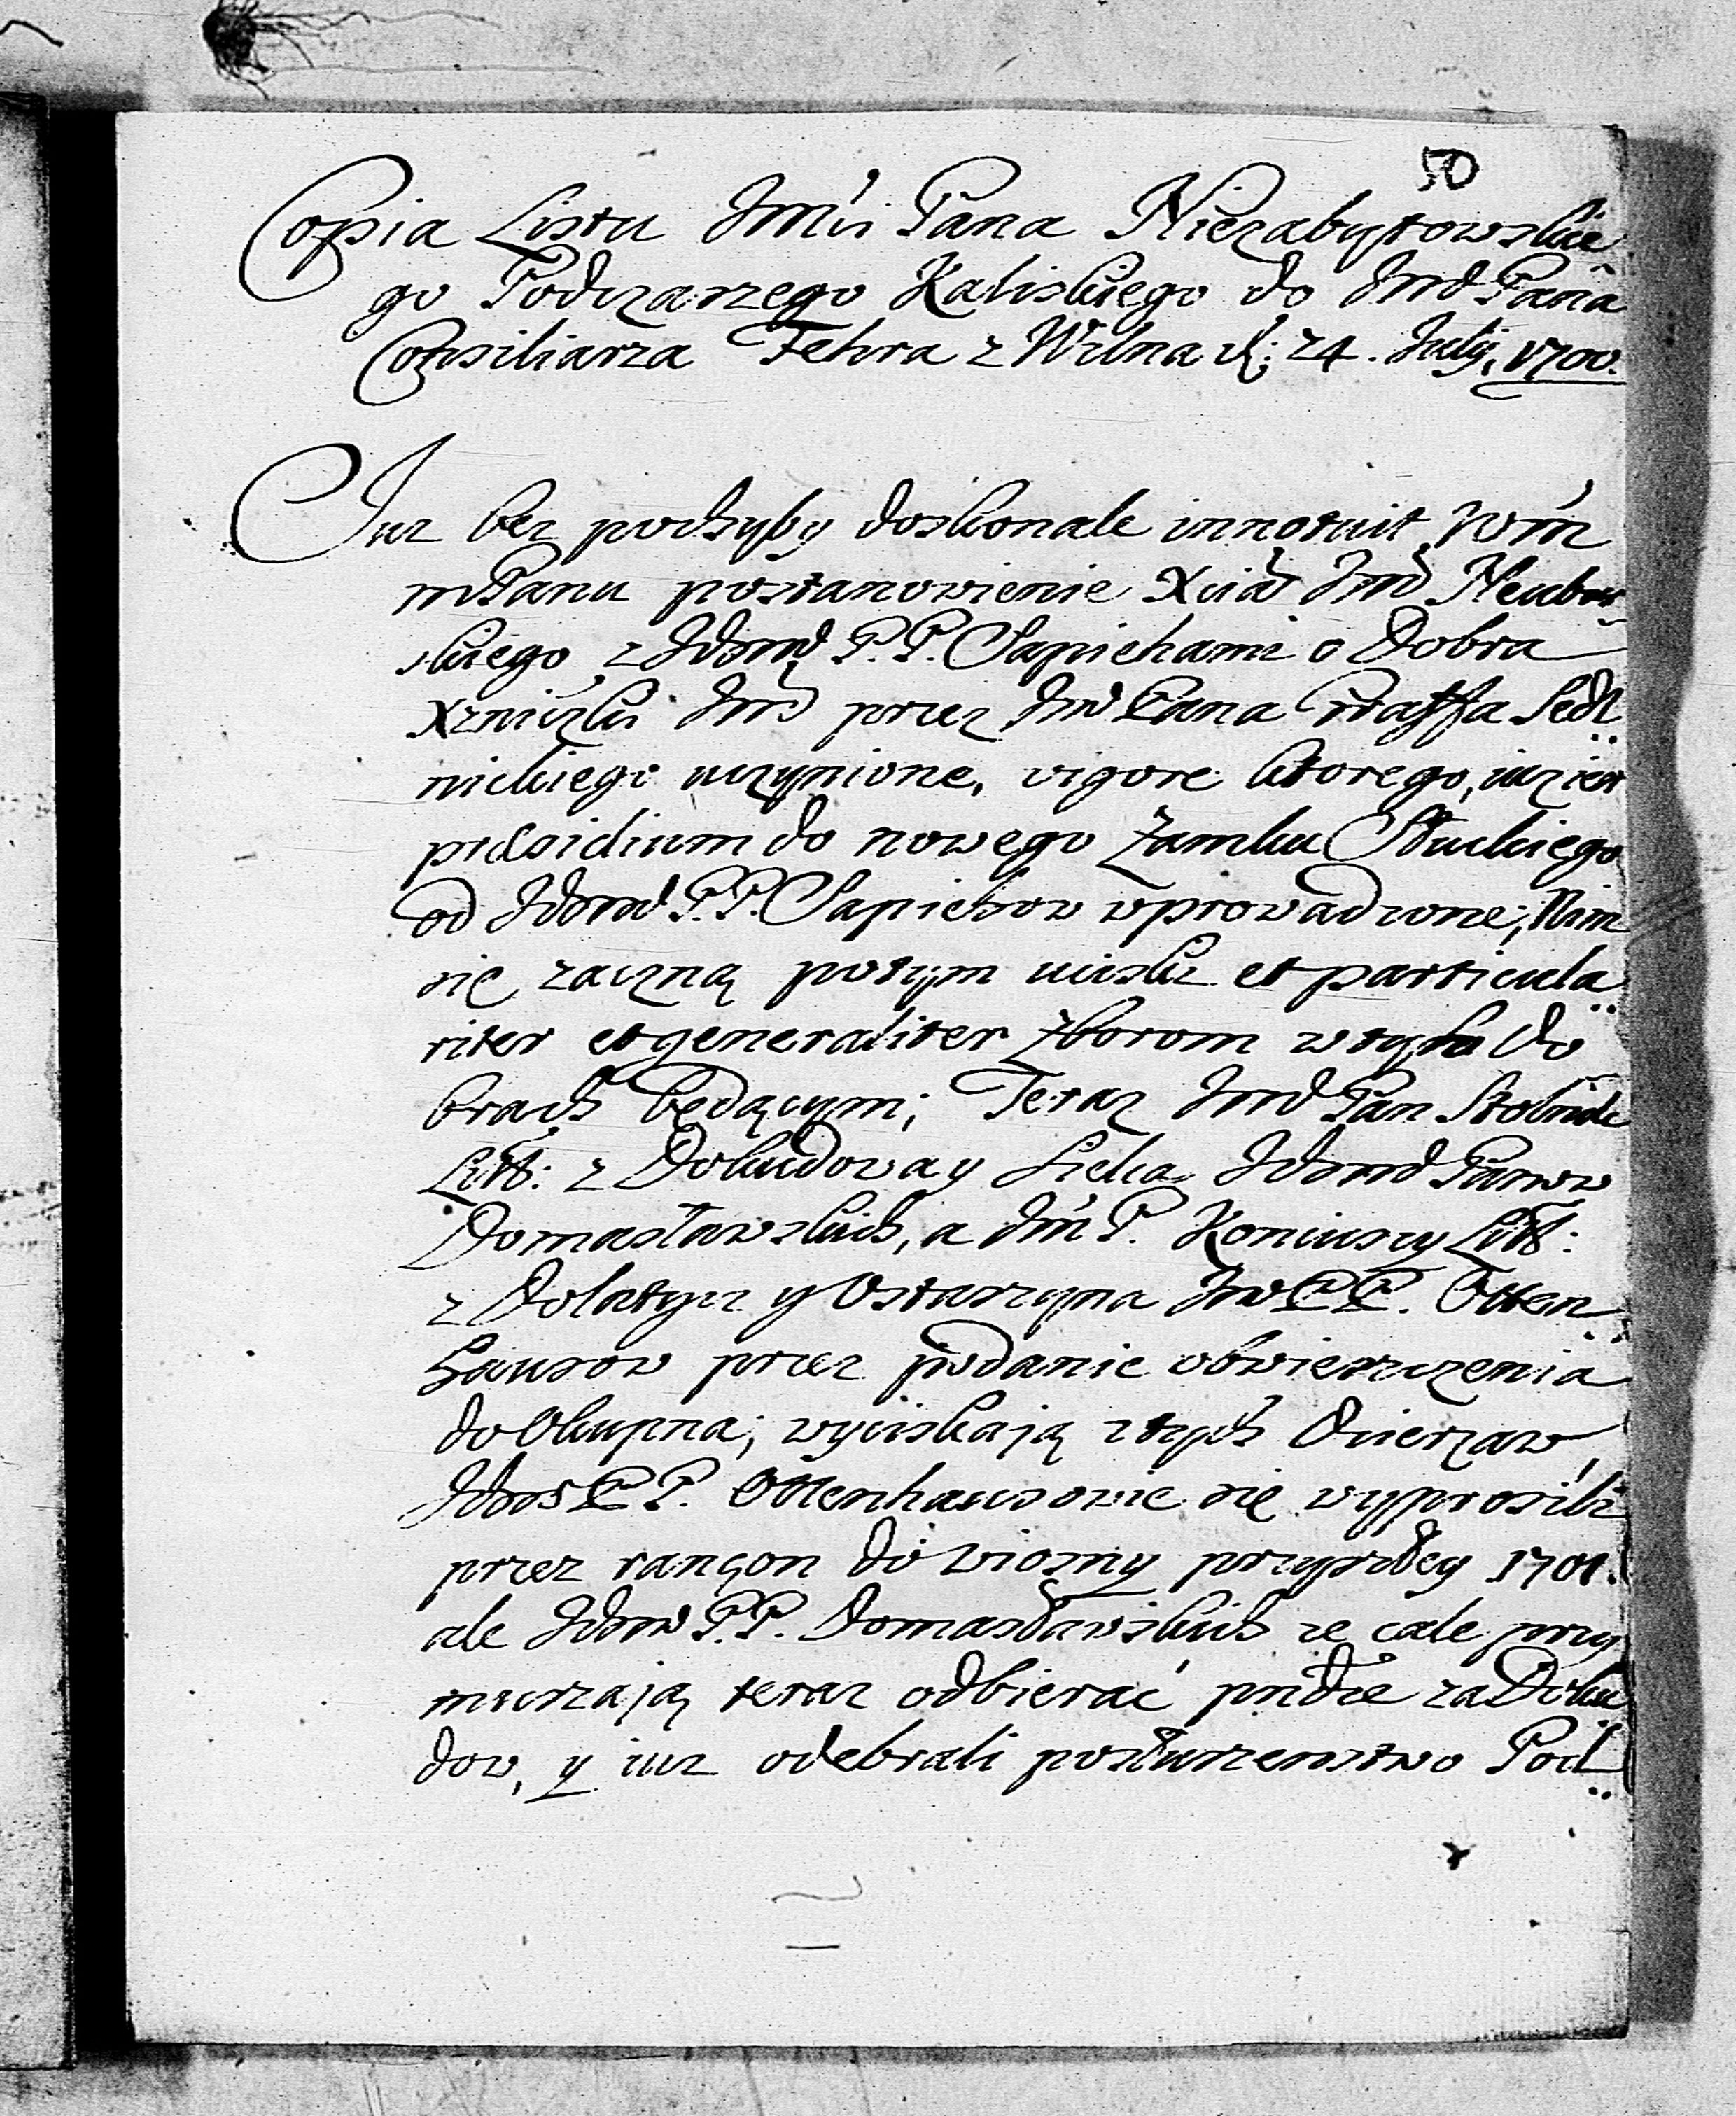 50
Copia Listu Jmći Pana Niezabytowskie
go Podczaszego Kaliskiego do Jmći Pana
Consiliarza Fehra z Wilna d: 24. July, 1700.
Juz bez pochyby doskonale innotuit Wm
mPanu postanowienie Xcia Jmći Neubur
skiego z Ichmć P.P. Sapiehami o Dobra
Xzniczki Jmć przez Jmć Pana Graffa Sedl
nickiego uczynione, vigore ktorego, iuz iest
praesidium do nowego Zamku Słuckiego
od Ichmć P.P. Sapiehow wprowadzone; Nim
się zaczną potym uciski et particula
riter et generaliter Zborom w tych Do
brach będącym; Teraz Jmć Pan Stolnik
Litt: z Dokudowa y Sielca Ichmć Panow
Domasławskich, a Jmć P. Koniuszy Litt:
z Dolatycz y Ostaszyna Jmć PP. Otten
hauzow przez podanie obwieszczenia
do Okupna; wyciskają z tych Dzierzaw,
Ichmć PP. Ottenhausowie się wyprosili
przez rançon do wiosny przyszłey 1701.
ale Ichmć P.P. Domasławskich ze cale przy
muszają teraz odbierać pndze za Doku
dow, y iuz odebrali posłuszenstwo Pod